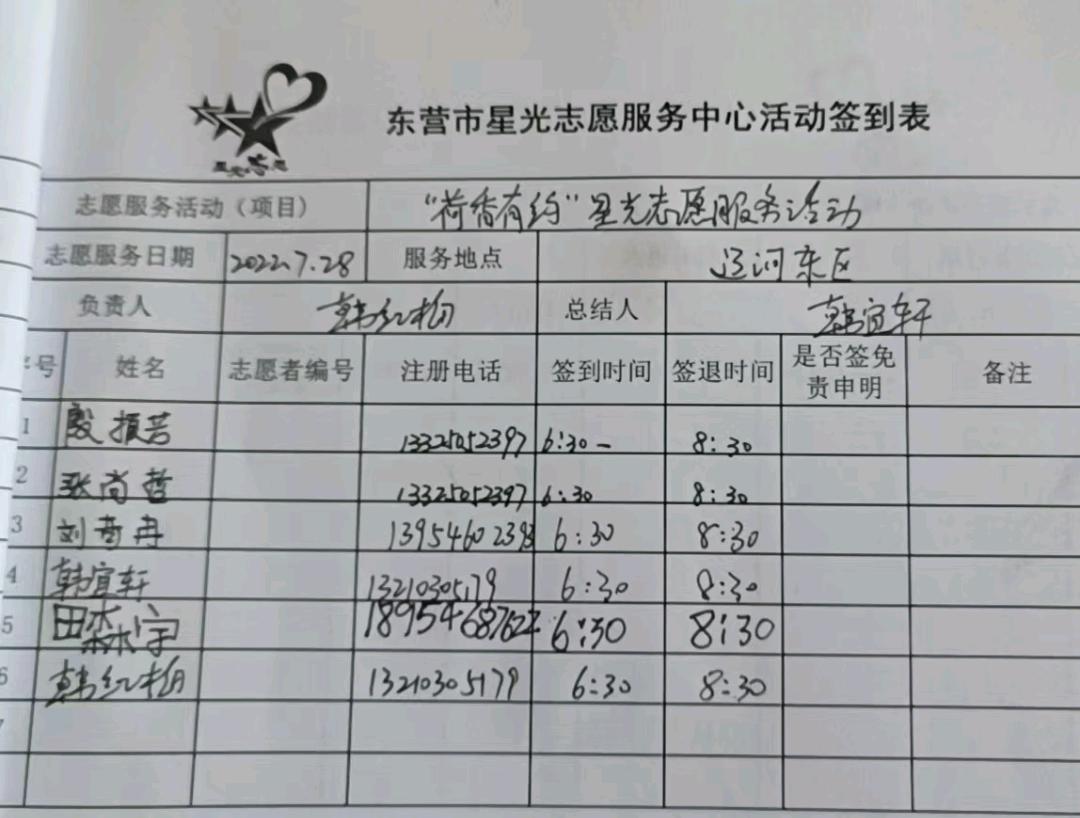 星光志愿
东营市星光志愿服务中心活动签到表
志愿服务活动（项目） “荷香有约”星光志愿服务活动
志愿服务日期 2022.7.28 服务地点 辽河东区
负责人 韩红梅 总结人 韩宜轩
序号 姓名 志愿者编号 注册电话 签到时间 签退时间 是否签免责申明 备注
1 殷振芸 13325052397 6:30- 8:30
2 张尚哲 13325052397 6:30 8:30
3 刘音冉 13954602393 6:30 8:30
4 韩宜轩 13210305179 6:30 8:30
5 田森宇 18954687627 6:30 8:30
6 韩红梅 13210305179 6:30 8:30
7